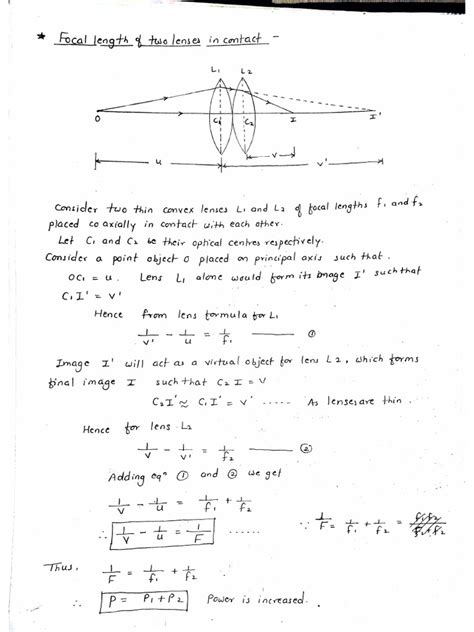 * Focal length of two lenses in contact -
L1 L2
O C1 C2 I I'
u v v'
Consider two thin convex lenses L1 and L2 of focal lengths f1 and f2
placed co axially in contact with each other.
Let C1 and C2 be their optical centres respectively.
Consider a point object O placed on principal axis such that.
OC1 = u. Lens L1 alone would form its image I' such that
C1I' = v'
Hence from lens formula for L1
1/v' - 1/u = 1/f1 ——— ①
Image I' will act as a virtual object for lens L2, which forms
final image I such that C2I = v
C2I' ≈ C1I' = v' ..... As lenses are thin.
Hence for lens L2
1/v - 1/v' = 1/f2 ——— ②
Adding eqn ① and ② we get
1/v - 1/u = 1/f1 + 1/f2
∴ 1/v - 1/u = 1/F ...... ∵ 1/F = 1/f1 + 1/f2 =
Thus, 1/F = 1/f1 + 1/f2
∴ P = P1 + P2 Power is increased.